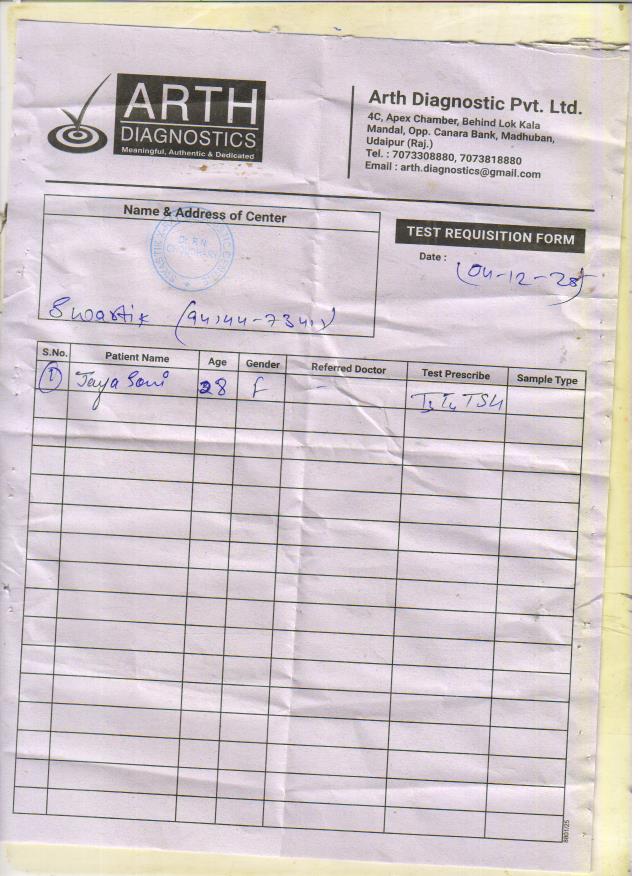 ARTH
DIAGNOSTICS
Meaningful, Authentic & Dedicated
Arth Diagnostic Pvt. Ltd.
4C, Apex Chamber, Behind Lok Kala
Mandal, Opp. Canara Bank, Madhuban,
Udaipur (Raj.)
Tel. : 7073308880, 7073818880
Email : arth.diagnostics@gmail.com
Name & Address of Center
Swastik
TEST REQUISITION FORM
Date : (04-12-25)
S.No. Patient Name Age Gender Referred Doctor Test Prescribe Sample Type
1 Jaya Soni 28 F - T3 T4 TSH
8801/25